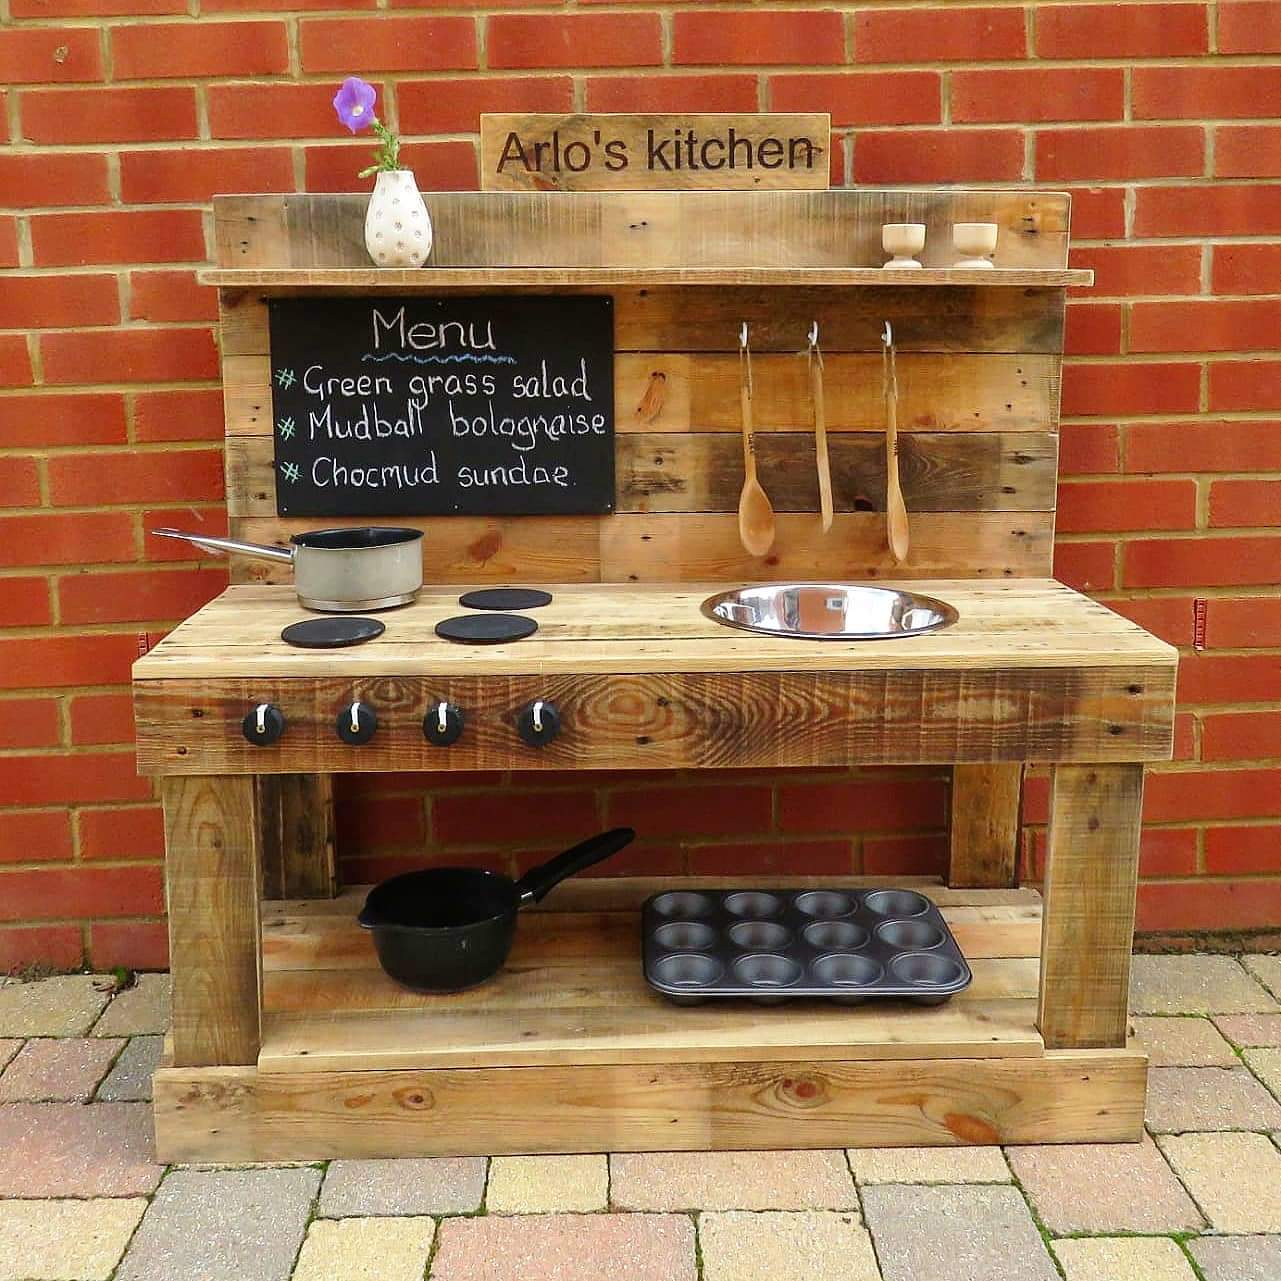 Arlo's kitchen
Menu
# Green grass salad
# Mudball bolognaise
# Chocmud sundae.